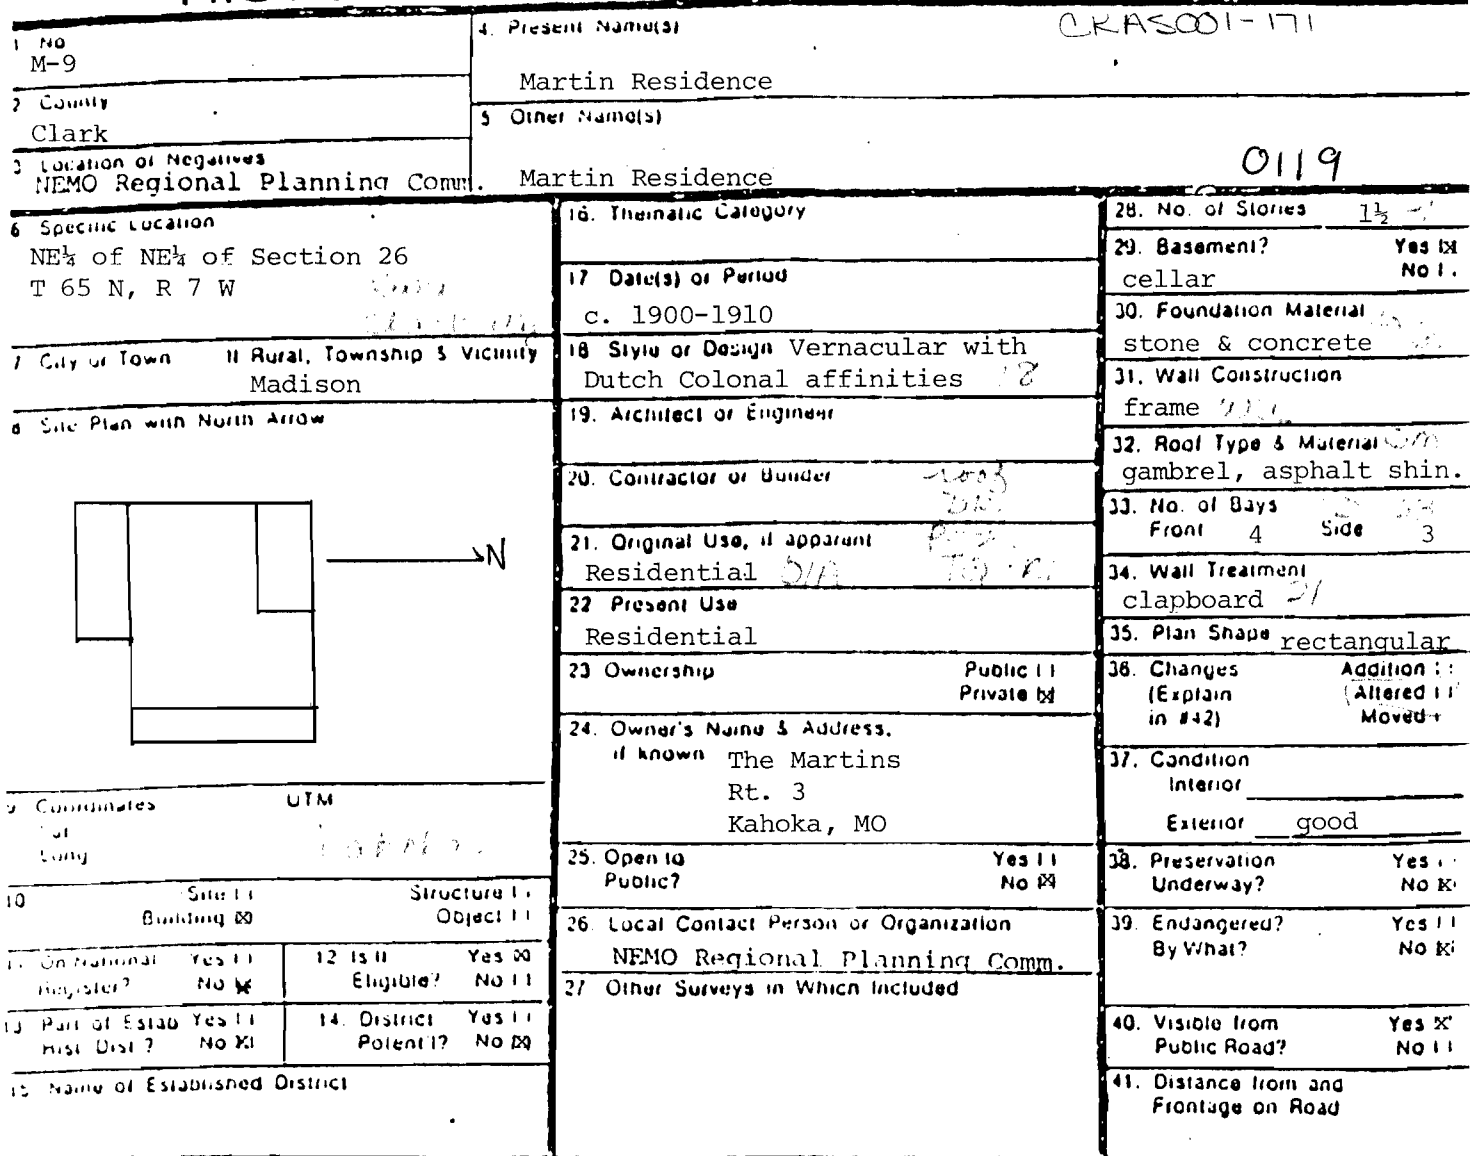 CKAS001-171
1 No
M-9
2 County
Clark
3 Location of Negatives
NEMO Regional Planning Comm.
4. Present Name(s)
Martin Residence
5 Other Name(s)
Martin Residence
0119
6 Specific Location
NE¼ of NE¼ of Section 26
T 65 N, R 7 W
7 City or Town If Rural, Township & Vicinity
Madison
8 Site Plan with North Arrow
N
9 Coordinates UTM
Lat
Long
10 Site [ ] Structure [ ]
Building [X] Object [ ]
11 On National Yes [ ]
Register? No [X]
12 Is It Yes [X]
Eligible? No [ ]
13 Part of Estab Yes [ ]
Hist Dist ? No [X]
14. District Yes [ ]
Potent'l? No [X]
15 Name of Established District
16. Thematic Category
17 Date(s) or Period
c. 1900-1910
18 Style or Design Vernacular with
Dutch Colonal affinities
19. Architect or Engineer
20. Contractor or Builder
21. Original Use, if apparent
Residential
22 Present Use
Residential
23 Ownership Public [ ]
Private [X]
24. Owner's Name & Address,
if known The Martins
Rt. 3
Kahoka, MO
25. Open to Yes [ ]
Public? No [X]
26. Local Contact Person or Organization
NEMO Regional Planning Comm.
27 Other Surveys in Which Included
28. No. of Stories 1½
29. Basement? Yes [X]
cellar No [ ]
30. Foundation Material
stone & concrete
31. Wall Construction
frame
32. Roof Type & Material
gambrel, asphalt shin.
33. No. of Bays
Front 4 Side 3
34. Wall Treatment
clapboard 21
35. Plan Shape rectangular
36. Changes Addition [ ]
(Explain Altered [ ]
in #42) Moved [ ]
37. Condition
Interior
Exterior good
38. Preservation Yes [ ]
Underway? No [X]
39. Endangered? Yes [ ]
By What? No [X]
40. Visible from Yes [X]
Public Road? No [ ]
41. Distance from and
Frontage on Road